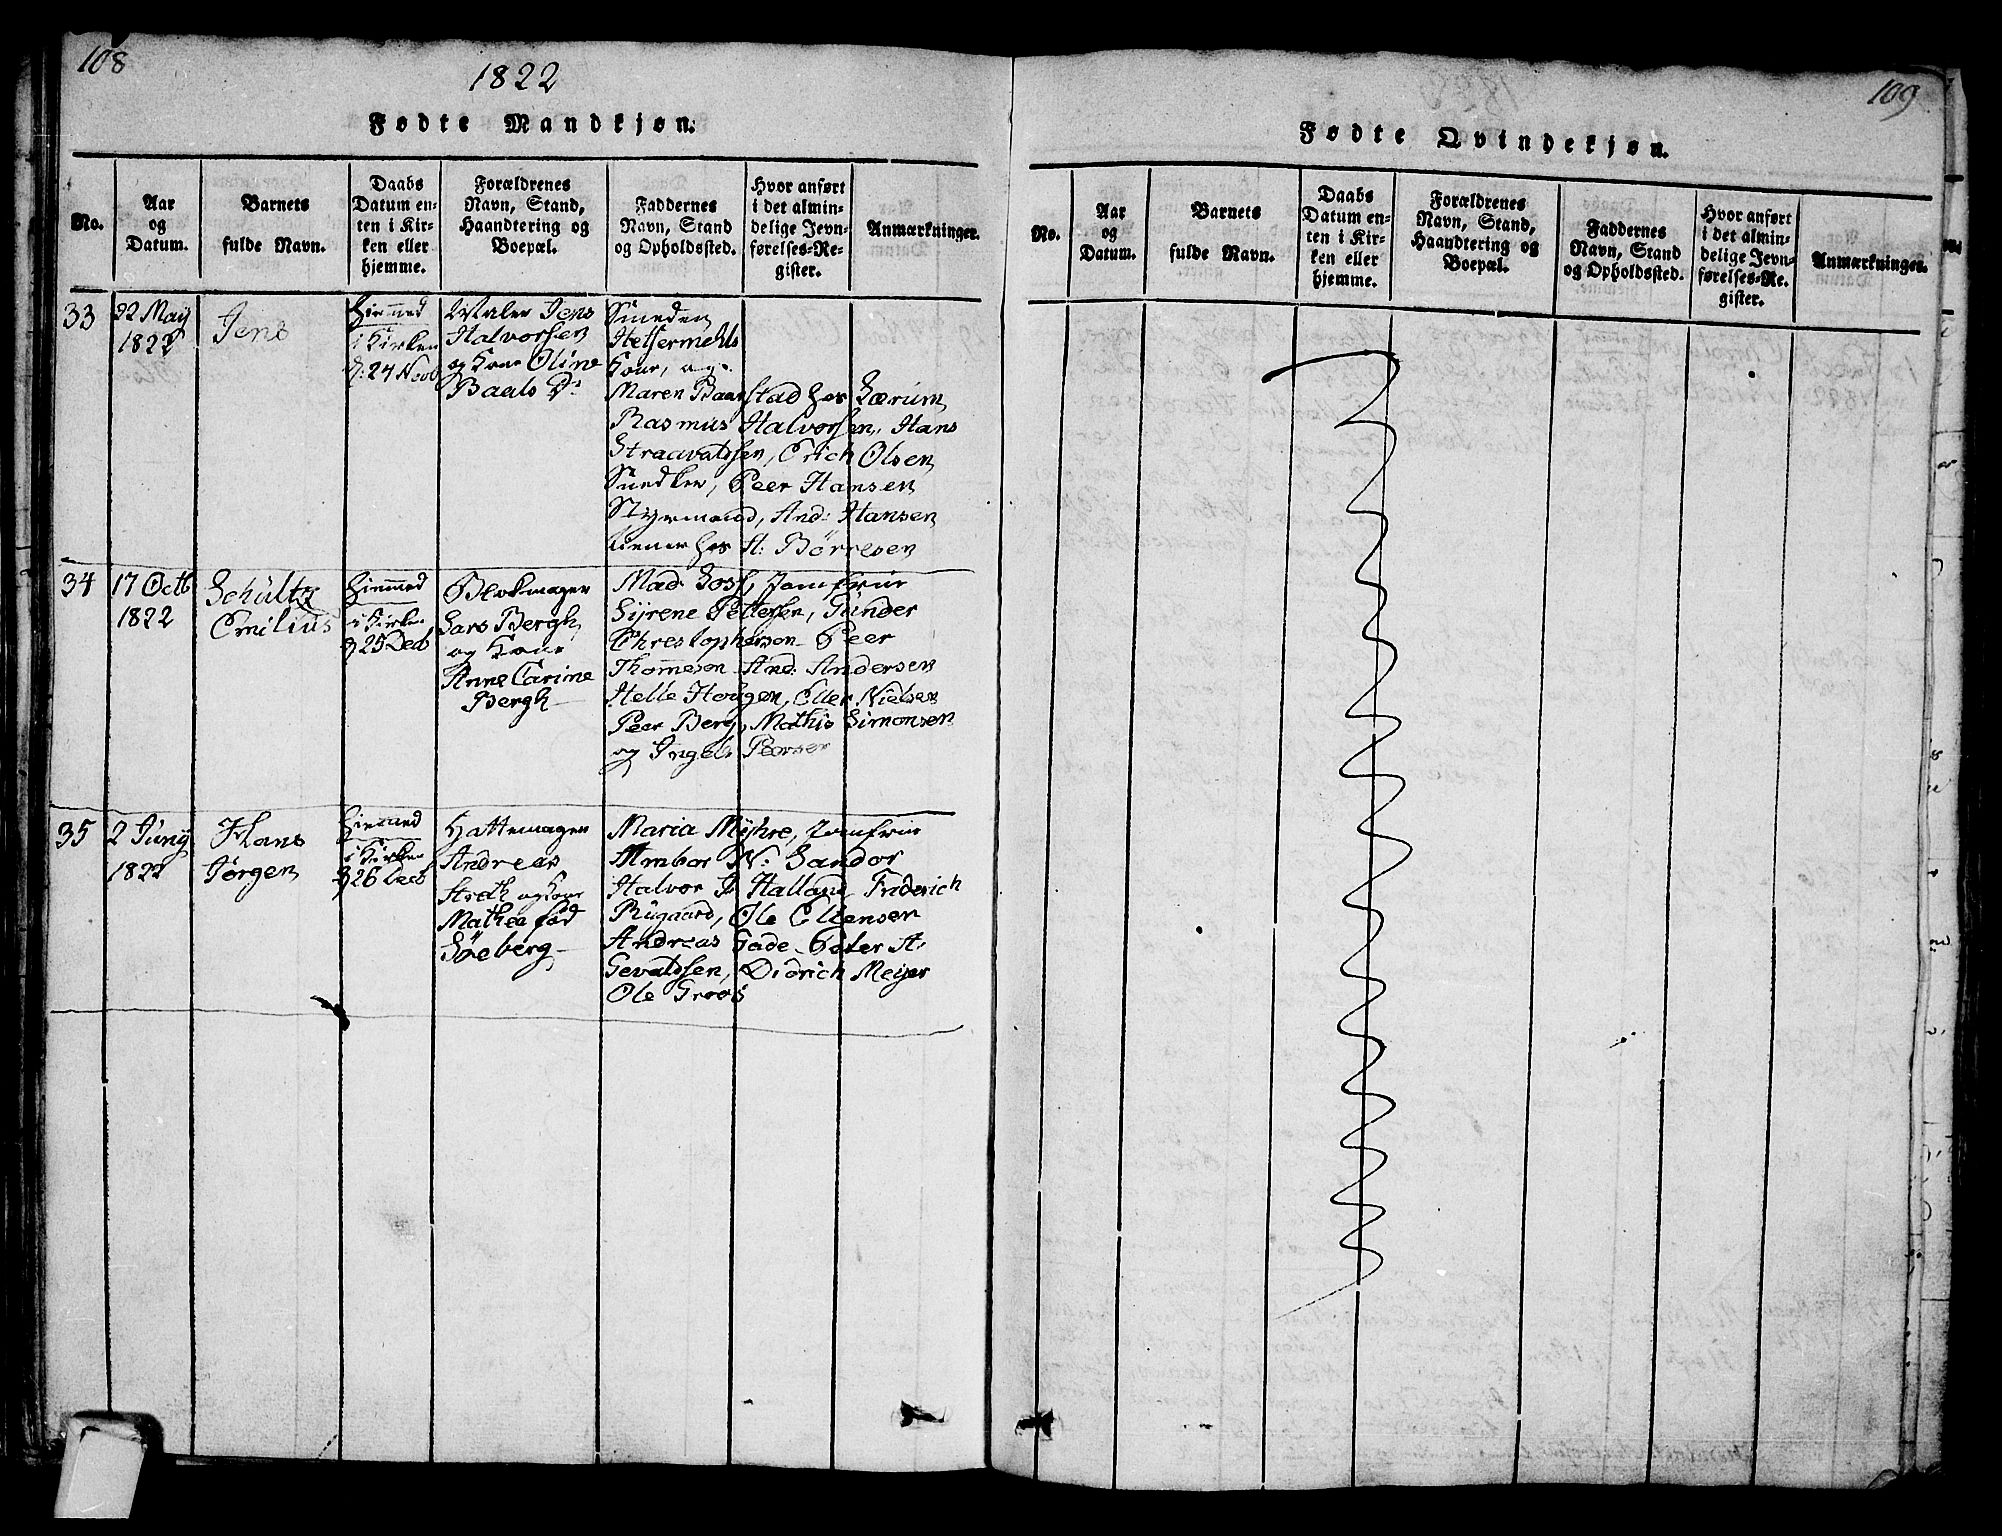 108
1822
Fødte Mandkjøn.
No.
Aar
og
Datum.
Barnets
fulde Navn.
Daabs
Datum en-
ten i Kir-
ken eller
hjemme.
Forældrenes
Navn, Stand,
Haandtering og
Boepæl.
Faddernes
Navn, Stand
og Opholdssted.
Hvor anført
i det almin-
delige Jevn-
førelses-Re-
gister.
Anmærkninger.
33
22 May
1822
Jens
Hiemmed
i Kirken
d: 24 Novb
Maler Jens
Halvorssen
og Kone Oline
Baals D:
Smeden
Kone, og
Maren Baarstad hos Lærum
Rasmus Halvorssen, Hans
Olsen
Peer Hansen
Styrmand, And: Hansen
tiener hos A: Børresen
34
17 Octb
1822
Schultz
Emilius
Hiemmed
i Kirken
d 25 Decb
Blokmager
Lars Bergh
og Kone
Anne Carine
Bergh
Mad: Jomfrue
Sÿrene Pettersen, Gunder
Christophersen Peer
Thomesen And: Andersen
Helle Hougen, Eller Nielsen
Peer Berg, Mathis Simonsen
og Ingeb:
35
2 Junÿ
1822
Hans
Jørgen
Hiemmed
i Kirken
d 26 Decb
Hattemager
Andreas
og Kone
Mathea fød
Søeberg
Maria Mÿhre, Jomfrue
Ambor N: Sandor
Halvor J: Halland Friderich
Rügaard, Ole Ellensen
Andreas Gade Peter A:
Gevaldssen, Didrich Meÿer
Ole Groos
109
Fødte Qvindekjøn.
No.
Aar
og
Datum.
Barnets
fulde Navn.
Daabs
Datum en-
ten i Kir-
ken eller
hjemme.
Forældrenes
Navn, Stand,
Haandtering og
Boepæl.
Faddernes
Navn, Stand
og Opholdssted.
Hvor anført
i det almin-
delige Jevn-
førelses-Re-
gister.
Anmærkninger.